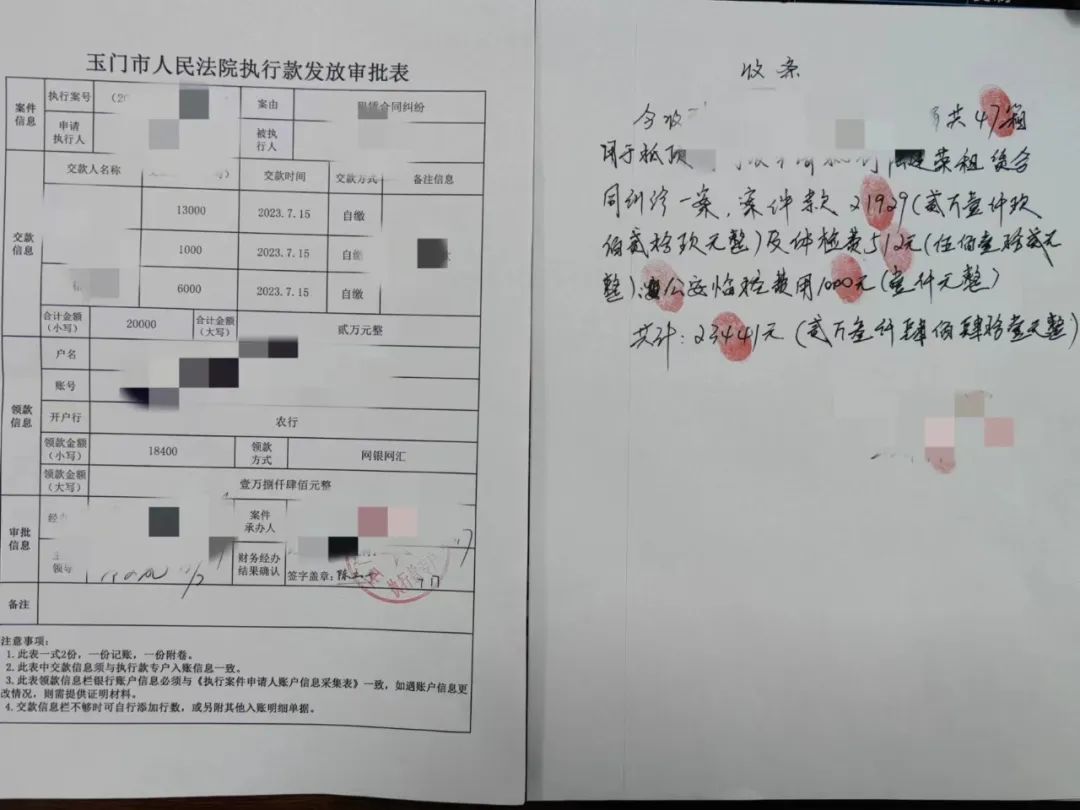 玉门市人民法院执行款发放审批表
案件信息
执行案号
案由
租赁合同纠纷
申请执行人
被执行人
交款信息
交款人名称
交款时间
交款方式
备注信息
13000
2023.7.15
自缴
1000
2023.7.15
自缴
6000
2023.7.15
自缴
合计金额（小写）
20000
合计金额（大写）
贰万元整
领款信息
户名
账号
开户行
农行
领款金额（小写）
18400
领款方式
网银网汇
领款金额（大写）
壹万捌仟肆佰元整
审批信息
案件承办人
财务经办结果确认
签字盖章：
备注
注意事项：
1.此表一式2份，一份记账，一份附卷。
2.此表中交款信息须与执行款专户入账信息一致。
3.此表领款信息栏银行账户信息必须与《执行案件申请人账户信息采集表》一致，如遇账户信息更
改情况，则需提供证明材料。
4.交款信息栏不够时可自行添加行数，或另附其他入账明细单据。
收条
今收
共47箱
用于抵顶
租赁合
同纠纷一案，案件款21929（贰万壹仟玖
佰贰拾玖元整）及体检费512元（伍佰壹拾贰元
整）费用1000元（壹仟元整）
共计：23441元（贰万叁仟肆佰肆拾壹元整）